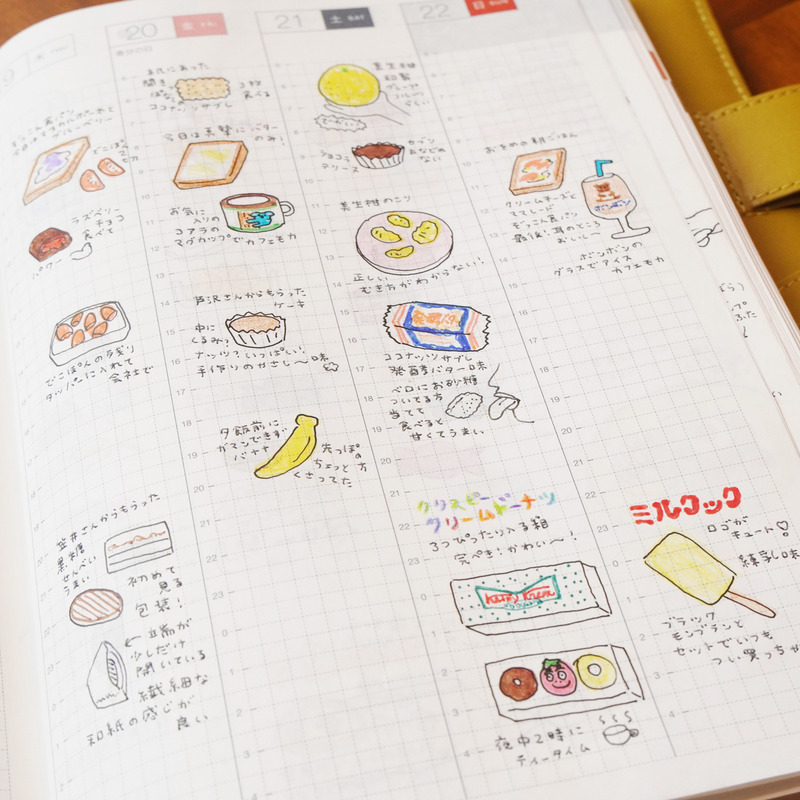 THU
20
金 FRI
春分の日
21
土 SAT
22
日 SUN
ココナッツサブレ
3枚
食べる
今日は真摯にバター
のみ!
お気に
入りの
コアラの
マグカップでカフェモカ
芦沢さんからもらった
ケーキ
中に
くるみ?
ナッツ?いっぱい!
手作りのやさし〜味
夕飯前に
ガマンできず
バナナ
先っぽの
ちょっと
くさってた
ラズベリー
チョコ
食べて
でこぽんの残り
タッパーに入れて
会社で
笠井さんからもらった
黒糖
せんべい
うまい
初めて
見る
包装!
← 立端が
少しだけ
開いている
繊細な
和紙の感じが
良い
美生柑
ショコラ
テリーヌ
セブン
ない
美生柑のこり
正しい
むき方がわからない!
ココナッツサブレ
発酵バター味
ベロにお砂糖
ついてる方
当てて
食べると
甘くてうまい
クリスピー
クリームドーナツ
3つぴったり入る箱
完ぺき!かわい〜!
Krispy Kreme
夜中2時に
ティータイム
おそめの朝ごはん
クリームチーズと
ママレード
ぞっこん食パン
最後!耳のところ
おいし〜
ボンボン
ボンボンの
グラスでアイス
カフェモカ
ミルクック
ロゴが
キュート♡
練乳味
ブラック
モンブランと
セットでいつも
つい買っちゃ